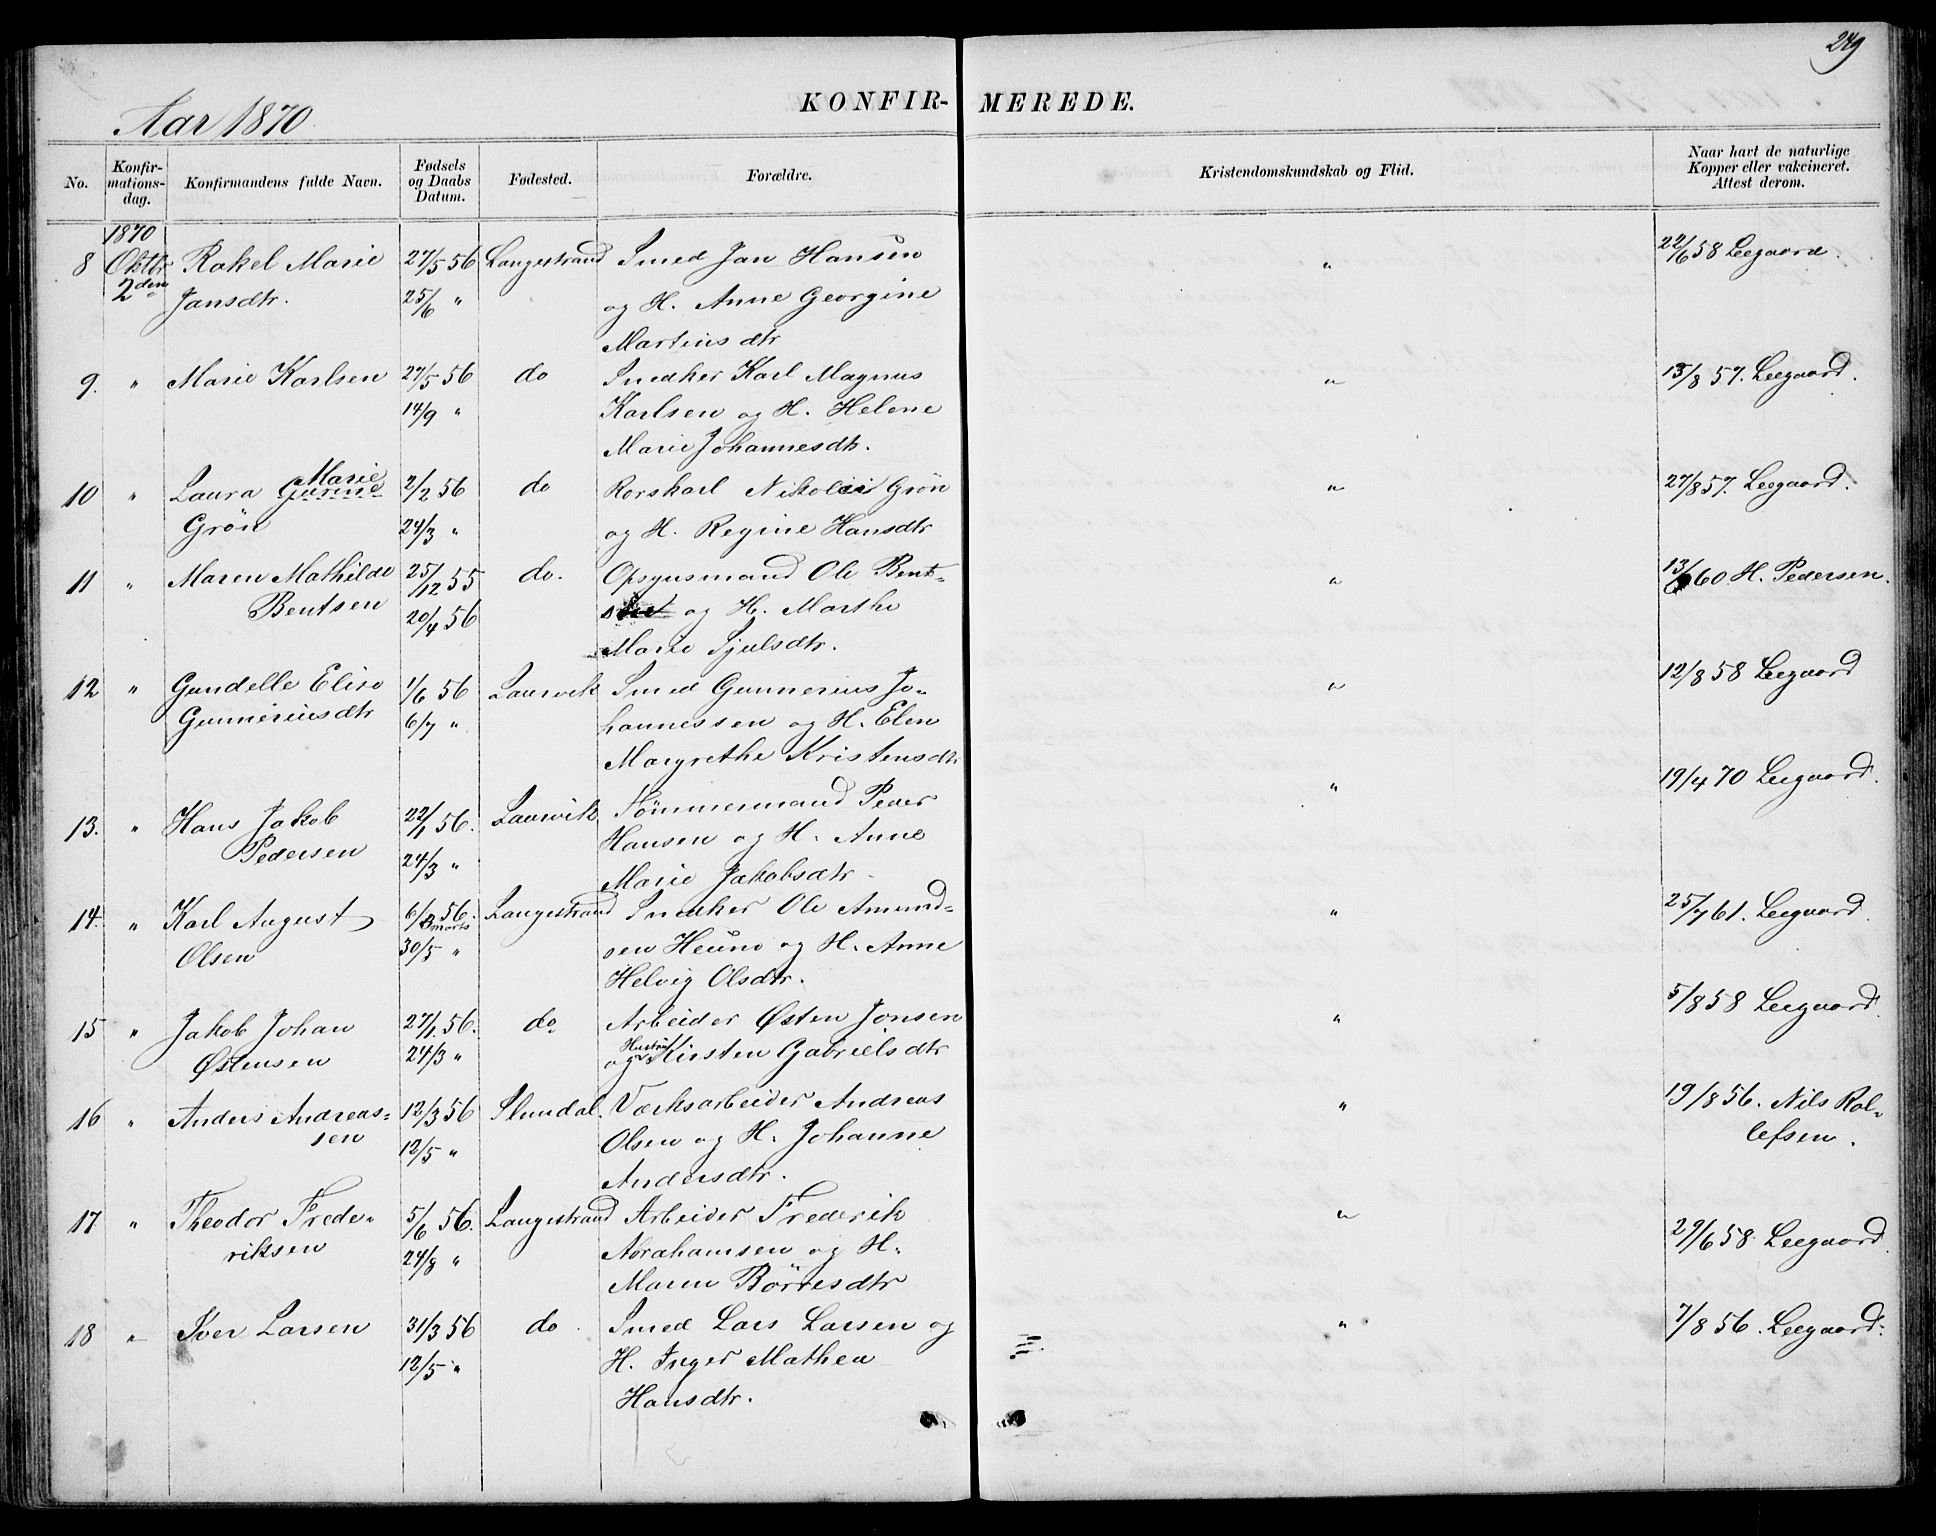 249
Aar 1870
KONFIR-MEREDE.
No. Konfir-mations-dag. Konfirmandens fulde Navn. Fødsels og Daabs Datum. Fødested. Forældre. Kristendomskundskab og Flid. Naar havt de naturlige Kopper eller vakcineret. Attest derom.
1870
8 Oktbr Rakel Marie 27/5 56 Langestrand Smed Jan Hansen " 22/6 58 Leegaard.
2den Jansdtr. 25/6 " og H. Anne Georgine
Martinsdtr
9. " Marie Karlsen 27/5 56 do Snedker Karl Magnus " 13/8 57. Leegaard.
14/9 " Karlsen og H. Helene
Marie Johannesdtr.
Marie
10 " Laura Gurine 2/2 56 do Rorskarl Nikolai Grön " 27/8 57. Leegaard.
Grön 24/3 " og H. Regine Hansdtr
11 " Maren Mathilde 25/12 55 do. Opsynsmand Ole Bent- " 13/9 60 H. Pedersen.
Bentsen 20/4 56 sen og H. Marthe
Marie Sjulsdtr.
12 " Gundelle Elise 1/6 56 Laurvik Smed Gunnerius Jo- " 12/8 58 Leegaard
Gunneriusdtr 6/7 " hannessen og H. Elen
Margrethe Kristensdtr
13. " Hans Jakob 22/1 56. Laurvik Tømmermand Peder " 19/4 70 Leegaard.
Pedersen 24/3 " Hansen og H. Anne
Marie Jakobsdtr.
14. " Karl August 6/3 56. Langestrand Snedker Ole Amund- " 25/7 61. Leegaard.
marts
Olsen 30/5 " sen Heum og H. Anne
Helvig Olsdtr.
15 " Jakob Johan 27/1 56. do Arbeider Østen Jonsen " 5/8 58 Leegaard.
Hustru
Østensen 24/3 " og Kirsten Gabrielsdtr
16 " Anders Andreas- 12/3 56 Slemdal. Værksarbeider Andreas " 19/8 56. Nils Rol-
sen 12/5 " Olsen og H. Johanne lefsen.
Andersdtr.
17 " Theodor Frede- 5/6 56. Langestrand Arbeider Frederik " 29/6 58 Leegaard.
riksen 24/8 " Abrahamsen og H.
Maren Börresdtr
18 " Iver Larsen 31/3 56 do Smed Lars Larsen og " 7/8 56. Leegaard.
12/5 " H. Inger Mathea
Hansdtr.